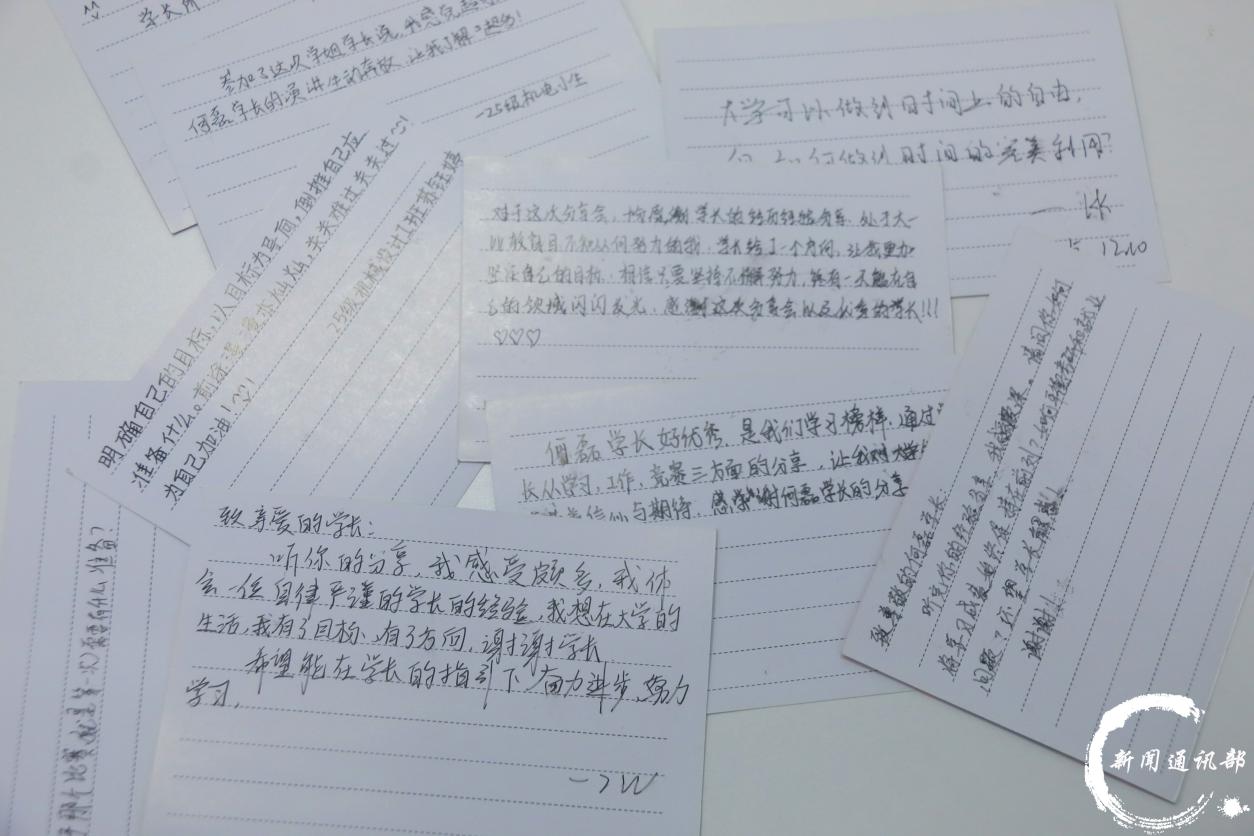 学长所
参加了这次学姐学长说,我感觉
何磊学长的演讲生动有放,让我了解了超多!
-25级机电小生
大学可以做到时间上的自由,
如何做到时间的完美利用?
12.10
明确自己的目标,以目标为导向,倒推自己应
准备什么。前路漫漫亦灿灿,关关难过关关过
为自己加油!
25级机械设计1班苏钰婷
对于这次分享会,十分感谢学长的经历经验分享.处于大一
比较盲目不知如何努力的我,学长给了一个方向,让我更加
坚定自己的目标.相信只要坚持不懈努力,终有一天能在自
己的领域闪闪发光.感谢这次分享会以及优秀的学长!!!
♡♡♡
何磊学长好优秀,是我们学习榜样.通过
长从学习,工作,竞赛三方面的分享,让我对大学
信心与期待.感谢何磊学长的分享
致亲爱的学长:
听你的分享,我感受颇多,我体
会一位自律严谨的学长的经验,我想在大学的
生活,我有了目标、有了方向,谢谢学长
希望能在学长的指引下奋力进步、努力
学习.
致尊敬的何磊学长:
听完你的经验分享,我
问题了还望学长解惑!!
谢谢!!
比赛 第一次 需要有什么准备?
新闻通讯部